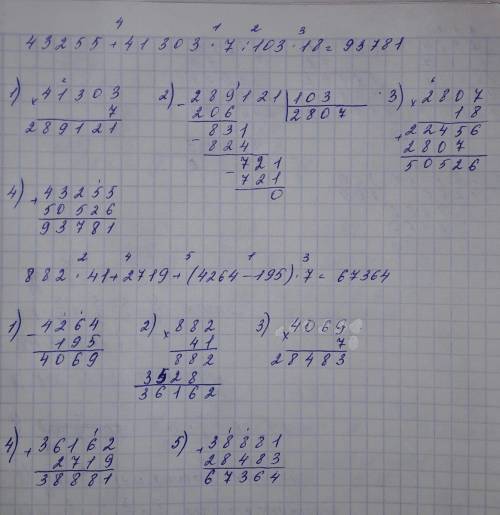 4 1 2 3
43255+41303·7:103·18=93781
1) ×41303 2) -289121 | 103 3) ×2807
7 206 2807 18
289121 -831 +22456
824 2807
-721 50526
721
0
4) +43255
50526
93781
2 4 5 1 3
882·41+2719+(4264-195)·7=67364
1) -4264 2) ×882 3) ×4069
195 41 7
4069 882 28483
3528
36162
4) +36162 5) +38881
2719 28483
38881 67364